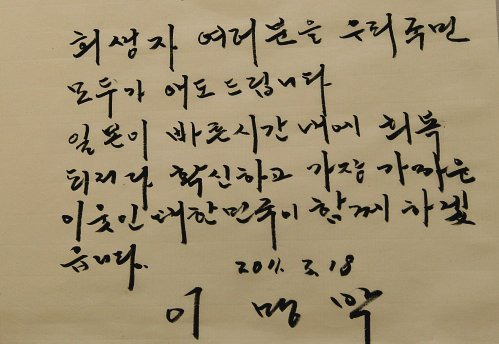 희생자 여러분을 우리국민
모두가 애도드립니다
일본이 빠른시간 내에 회복
되리라 확신하고 가장 가까운
이웃인 대한민국이 함께 하겠
습니다.
2011. 3. 18
이 명 박